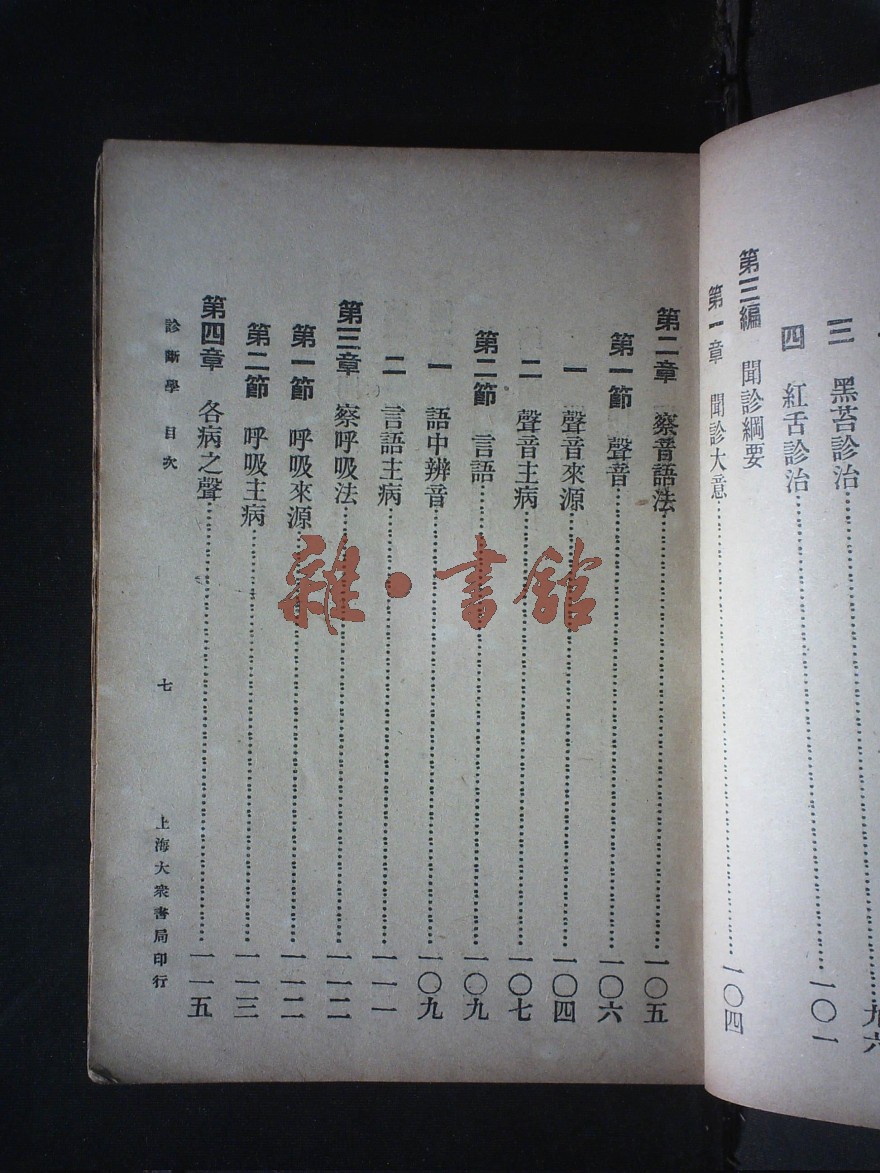 九六
三 黑苔診治……一〇一
四 紅舌診治
第三編 聞診綱要
第一章 聞診大意……一〇四
第二章 察音語法……一〇五
第一節 聲音……一〇六
一 聲音來源……一〇四
二 聲音主病……一〇七
第二節 言語……一〇九
一 語中辨音……一〇九
二 言語主病……一一一
第三章 察呼吸法……一一二
第一節 呼吸來源……一一二
第二節 呼吸主病……一一三
第四章 各病之聲……一一五
診斷學 目次 七 上海大衆書局印行
雜·書館